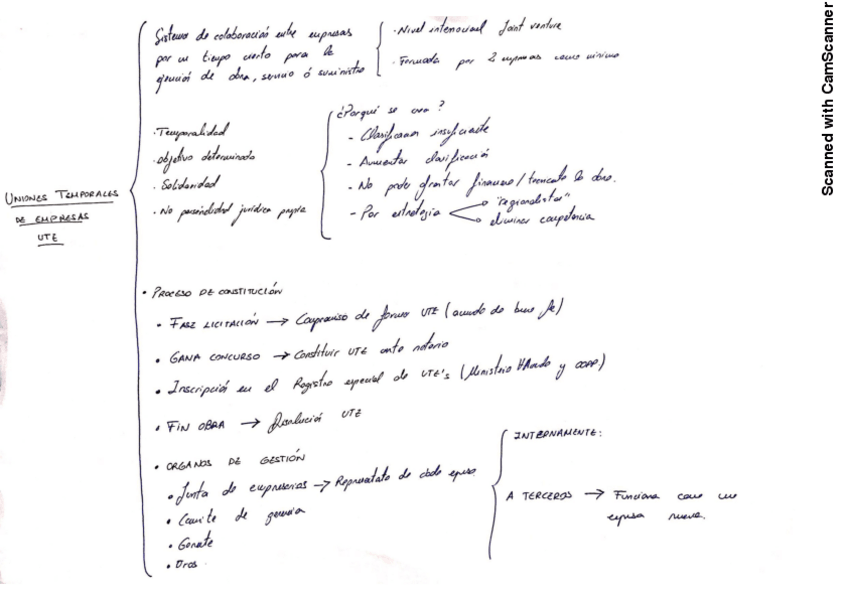 UNIONES TEMPORALES
DE EMPRESAS
UTE
Sistema de colaboración entre empresas
por un tiempo cierto para la
ejecución de obra, servicio ó suministro
· Nivel internacional Joint venture
· Formada por 2 empresas como mínimo
· Temporalidad
· objetivo determinado
· Solidaridad
· No personalidad jurídica propia
¿Porqué se crea?
- Clasificacion insuficiente
- Aumentar clasificación
- No poder afrontar financiero/tecnicate la obra.
- Por estrategia
"regionalistas"
eliminar competencia
· PROCESO DE CONSTITUCIÓN
· FASE LICITACIÓN → Compromiso de formar UTE (acuerdo de buena fe)
· GANA CONCURSO → Constituir UTE ante notario
· Inscripción en el Registro especial de UTE's (Ministerio HAcnda y OOPP)
· FIN OBRA → Disolución UTE
· ORGANOS DE GESTIÓN
· Junta de empresarios → Representate de cada epresa
· Comite de gerencia
· Gerente
· Otros
INTERNAMENTE:
A TERCEROS → Funciona como una
epresa nueva.
Scanned with CamScanner